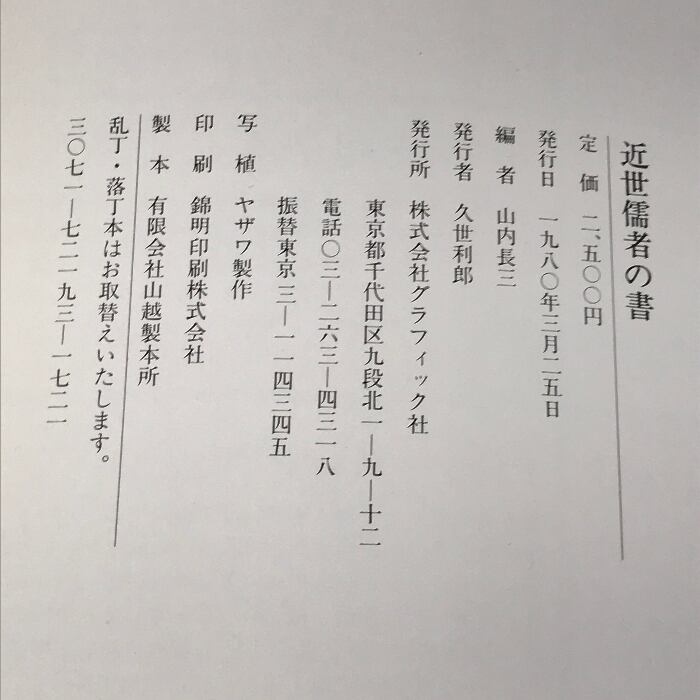 近世儒者の書
定価 二、五〇〇円
発行日 一九八〇年三月二五日
編者 山内長三
発行者 久世利郎
発行所 株式会社グラフィック社
東京都千代田区九段北一―九―十二
電話〇三―二六三―四三一八
振替東京三―一一四三四五
写植 ヤザワ製作
印刷 錦明印刷株式会社
製本 有限会社山越製本所
乱丁・落丁本はお取替えいたします。
三〇七一―七二一九三―一七二一